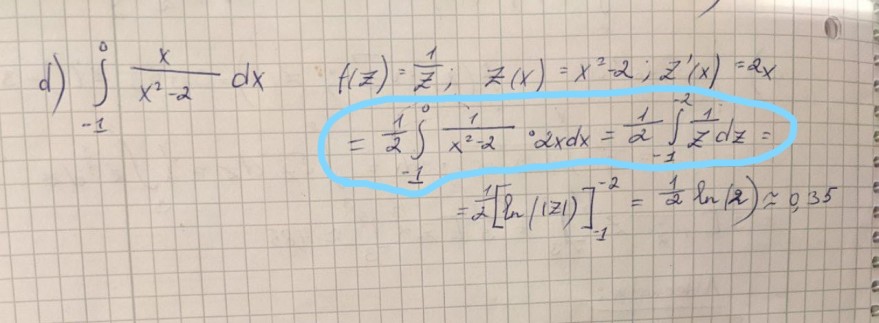 d) ∫₋₁⁰ x/(x²-2) dx   f(z) = 1/z ; z(x) = x²-2 ; z'(x) = 2x
= 1/2 ∫₋₁⁰ 1/(x²-2) · 2xdx = 1/2 ∫₋₁⁻² 1/z dz =
= 1/2 [ln(|z|)]₋₁⁻² = 1/2 ln(2) ≈ 0,35